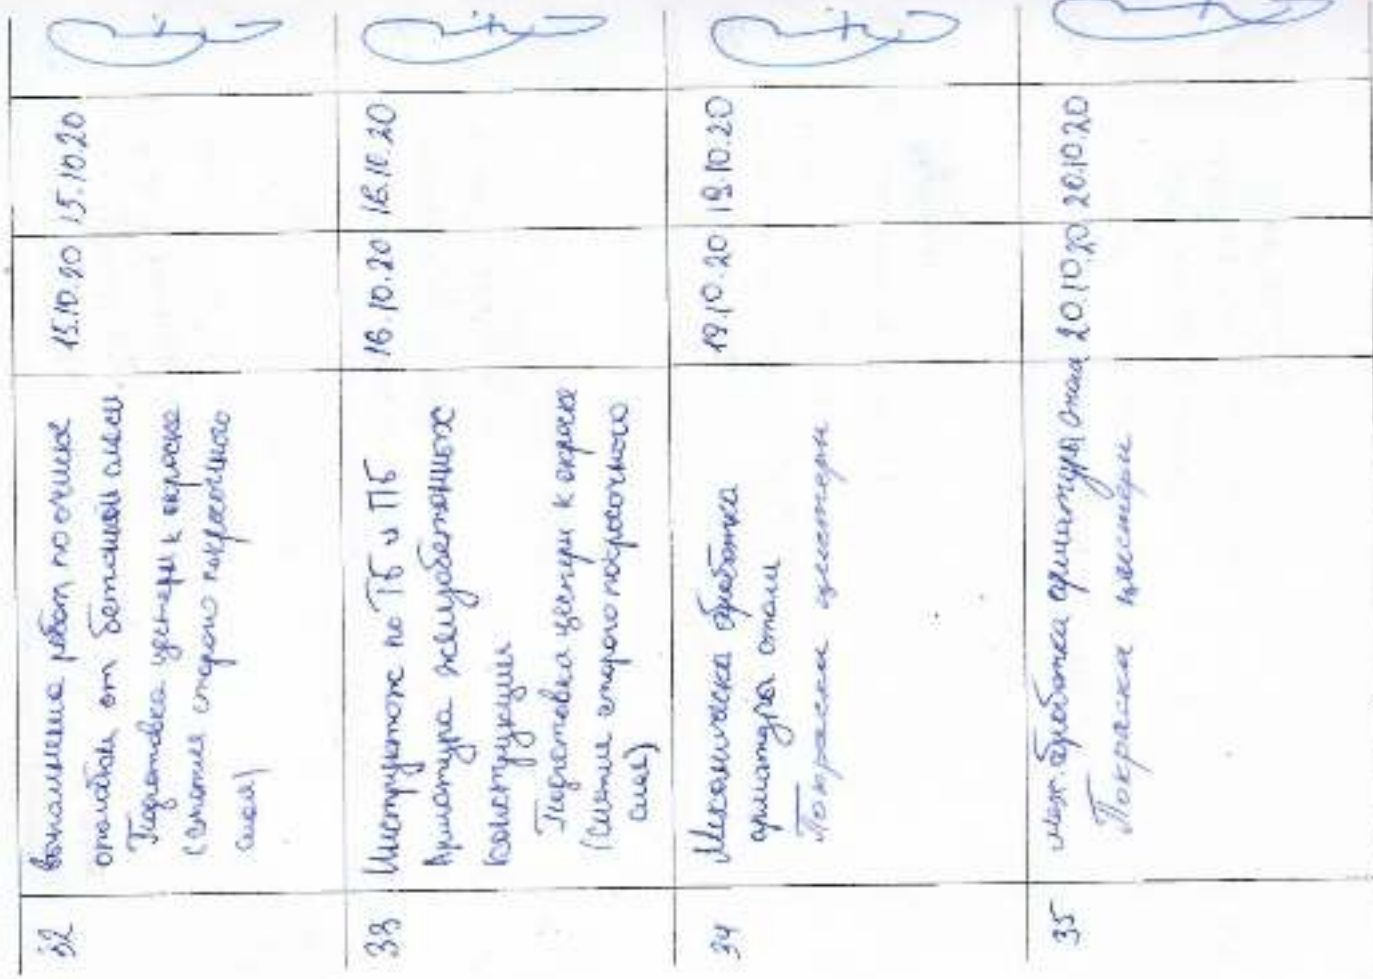 32
выполнение работ по очистке
опалубки от бетонной смеси.
Подготовка цистерн к окраске
(снятие старого покрасочного
слоя)
15.10.20
15.10.20
33
Инструктаж по ТБ и ПБ
Арматура железобетонных
конструкций
Подготовка цистерн к окраске
(снятие старого покрасочного
слоя)
16.10.20
16.10.20
34
Механическа обработка
арматура стали
Покраска цистерн
19.10.20
19.10.20
35
мех. обработка арматуры стали
Покраска цистерн
20.10.20
20.10.20